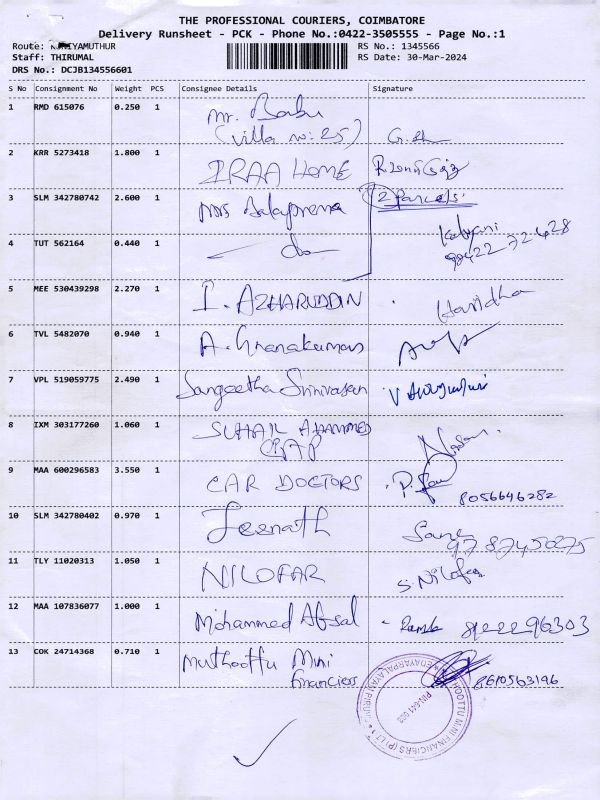 THE PROFESSIONAL COURIERS, COIMBATORE
Delivery Runsheet - PCK - Phone No.:0422-3505555 - Page No.:1
Route: KUNIYAMUTHUR
Staff: THIRUMAL
DRS No.: DCJB134556601
RS No.: 1345566
RS Date: 30-Mar-2024
S No Consignment No Weight PCS Consignee Details Signature
1 RMD 615076 0.250 1 Mr. Babu
(Villa no: 25)
2 KRR 5273418 1.800 1 IRAA HOME
3 SLM 342780742 2.600 1 Mrs Balaprema 2 Parcels
4 TUT 562164 0.440 1 do Kalyani
98422 72428
5 MEE 530439298 2.270 1 I. AZHARUDDIN Haridha
6 TVL 5482070 0.940 1 A. Gnanakumar
7 VPL 519059775 2.490 1 Sangeetha Srinivasan
8 IXM 303177260 1.060 1 SUHAIL AHAMMED
9 MAA 600296583 3.550 1 CAR DOCTORS 8056646282
10 SLM 342780402 0.970 1 Jeenath
9787450275
11 TLY 11020313 1.050 1 NILOFAR S. Nilofar
12 MAA 107836077 1.000 1 Mohammed Afsal 8122296303
13 COK 24714368 0.710 1 Muthoottu Mini
Financiers 8610563196